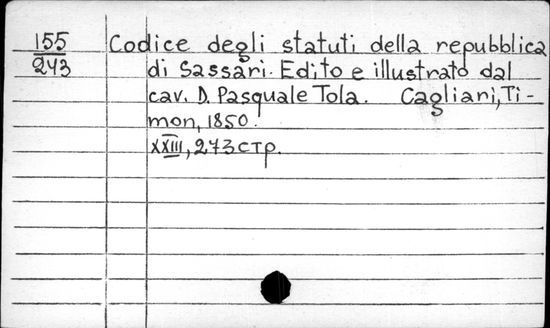 155 Codice degli statuti della repubblica
243 di Sassari. Edito e illustrato dal
cav. D. Pasquale Tola. Cagliari, Ti-
mon, 1850.
XXIII, 273 стр.